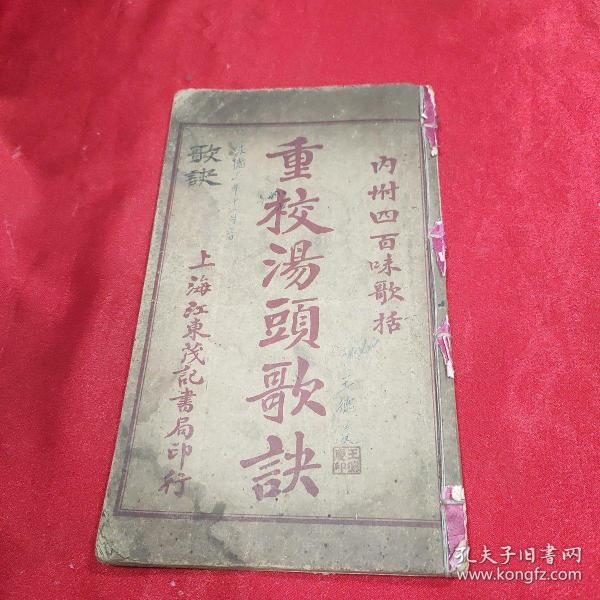 内附四百味歌括
重校湯頭歌訣
上海江東茂記書局印行
歌訣
孔夫子旧书网
www.kongfz.com